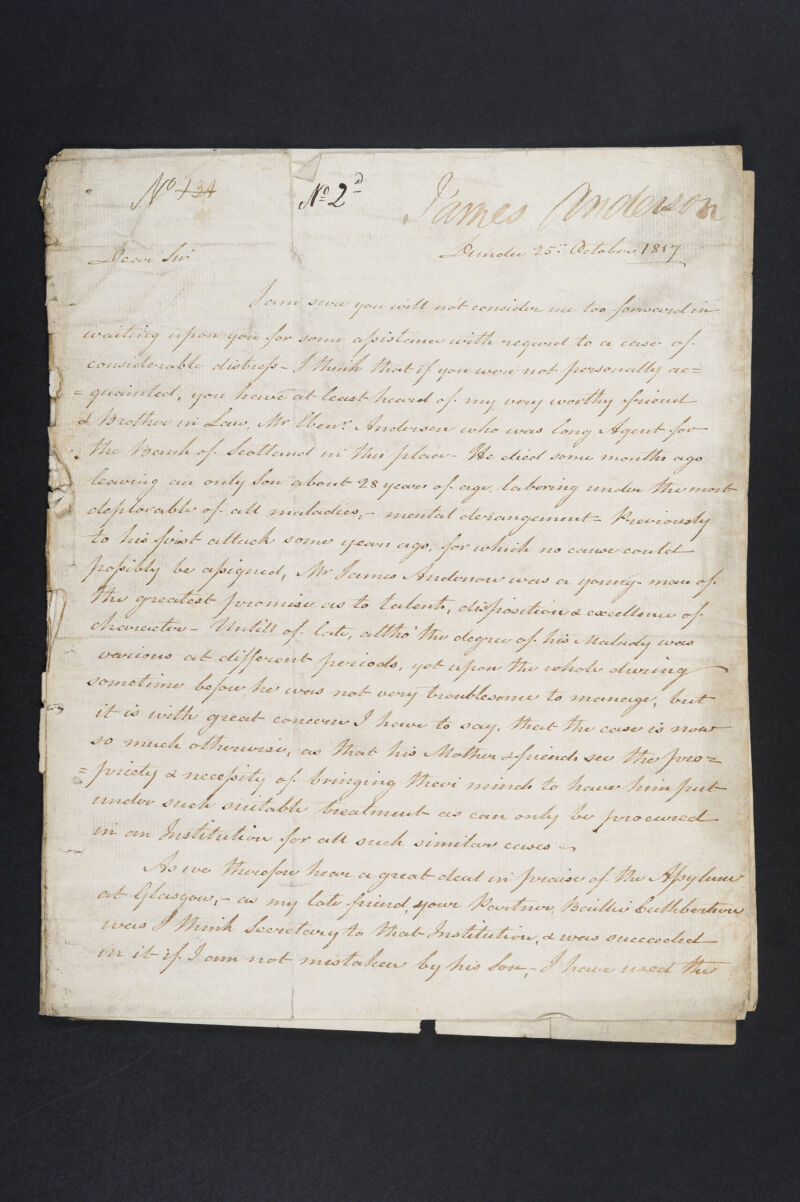 No 134
No. 2d
James Anderson
Dundee 25th October 1817
Dear Sir
I am sure you will not consider me too forward in
waiting upon you for some assistance with regard to a case of
considerable distress - I think that if you were not personally ac=
=quainted, you have at least heard of my very worthy friend
& Brother in Law, Mr Ebenr. Anderson who was long Agent for
the Bank of Scotland in this place - He died some months ago
leaving an only Son about 28 years of age, laboring under the most
deplorable of all maladies, - mental derangement - Previously
to his first attack some years ago, for which no cause could
possibly be assigned, Mr James Anderson was a young man of
the greatest promise as to talents, disposition & excellence of
character - Untill of late, altho' the degree of his Malady was
various at different periods, yet upon the whole during
sometime before, he was not very troublesome to manage, but
it is with great concern I have to say, that the case is now
so much otherwise, as that his Mother & friends see the pro=
=priety & necessity of bringing their minds to have him put
under such suitable treatment as can only be procured
in an Institution for all such similar cases -
As we therefore hear a great deal in praise of the Assylum
at Glasgow, - as my late friend, your Partner, Baillie Cuthbertson
was I think Secretary to that Institution, & was succeeded
in it if I am not mistaken by his Son, - I have used the